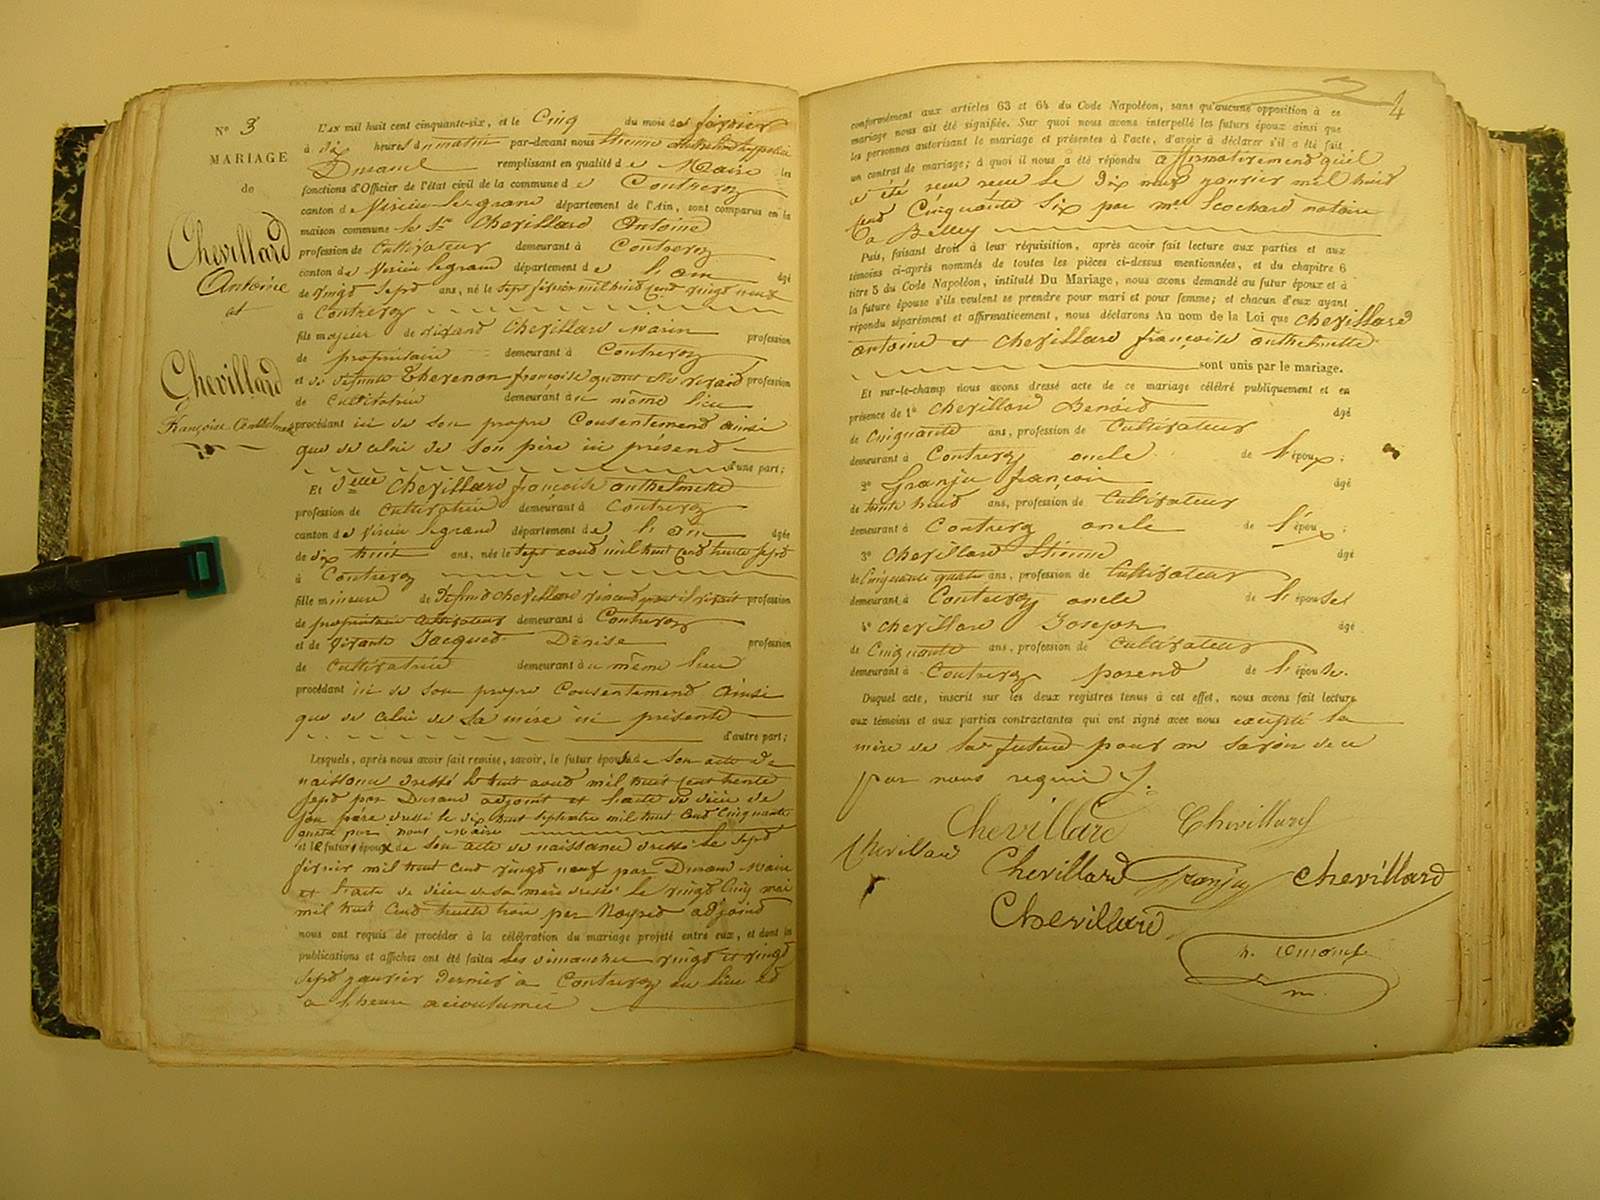 N° 3
MARIAGE
de
Chevillard
Antoine
et
Chevillard
Françoise Anthelmette
L'AN mil huit cent cinquante-six, et le Cinq du mois de février
à dix heures du matin par-devant nous Etienne anthelme hyppolite
Durand remplissant en qualité de Maire les
fonctions d'Officier de l'état civil de la commune de Contrevoz
canton de Virieu-le-grand département de l'Ain, sont comparus en la
maison commune le Sr Chevillard Antoine
profession de Cultivateur demeurant à Contrevoz
canton de Virieu legrand département de l'ain âgé
de vingt sept ans, né le sept février mil huit cent vingt neuf
à Contrevoz
fils majeur de vivant Chevillard Marin profession
de propriétaire demeurant à Contrevoz
et de défunte Thevenon françoise quant elle vivait profession
de Cultivatrice demeurant au même lieu
procédant ici de son propre Consentement ainsi
que de celui de son père ici présent
d'une part;
Et Delle Chevillard françoise anthelmette
profession de Cultivatrice demeurant à Contrevoz
canton de Virieu legrand département de l'ain âgée
de dix huit ans, née le sept aout mil huit cent trente sept
à Contrevoz
fille mineure de Défunt Chevillard vincent quant il vivait profession
de propriétaire Cultivateur demeurant à Contrevoz
et de vivante Jacquet Denise profession
de Cultivatrice demeurant au même lieu
procédant ici de son propre Consentement ainsi
que de celui de sa mère ici présente
d'autre part;
Lesquels, après nous avoir fait remise, savoir, le futur épouse de son acte de
naissance dressé le huit aout mil huit cent trente
sept par Durand adjoint et l'acte de décès de
son père dressé le dix huit septembre mil huit cent cinquante
par nous maire
et le futur époux de son acte de naissance dressé le sept
février mil huit cent vingt neuf par Durand Maire
et l'acte de décès de sa mère dressé le vingt cinq mai
mil huit cent trente trois par adjoint
nous ont requis de procéder à la célébration du mariage projeté entre eux, et dont les
publications et affiches ont été faites les dimanches vingt et vingt
sept janvier dernier à Contrevoz au lieu et
à l'heure accoutumée
4
conformément aux articles 63 et 64 du Code Napoléon, sans qu'aucune opposition à ce
mariage nous ait été signifiée. Sur quoi nous avons interpellé les futurs époux ainsi que
les personnes autorisant le mariage et présentes à l'acte, d'avoir à déclarer s'il a été fait
un contrat de mariage; à quoi il nous a été répondu affirmativement qu'il
a été reçu le dix neuf janvier mil huit
cent Cinquante six par Me notaire
à Belley
Puis, faisant droit à leur réquisition, après avoir fait lecture aux parties et aux
témoins ci-après nommés de toutes les pièces ci-dessus mentionnées, et du chapitre 6
titre 5 du Code Napoléon, intitulé Du Mariage, nous avons demandé au futur époux et à
la future épouse s'ils veulent se prendre pour mari et pour femme; et chacun d'eux ayant
répondu séparément et affirmativement, nous déclarons Au nom de la Loi que chevillard
antoine et chevillard françoise anthelmette
sont unis par le mariage.
Et sur-le-champ nous avons dressé acte de ce mariage célébré publiquement et en
présence de 1° chevillard Benoit âgé
de Cinquante ans, profession de Cultivateur
demeurant à Contrevoz oncle de l'époux;
2° franju françois âgé
de trente huit ans, profession de Cultivateur
demeurant à Contrevoz oncle de l'époux;
3° chevillard Etienne âgé
de Cinquante quatre ans, profession de Cultivateur
demeurant à Contrevoz oncle de l'épouse
4° chevillard Joseph âgé
de Cinquante ans, profession de cultivateur
demeurant à Contrevoz parent de l'épouse.
Duquel acte, inscrit sur les deux registres tenus à cet effet, nous avons fait lecture
aux témoins et aux parties contractantes qui ont signé avec nous excepté la
mère de la future pour ne savoir de ce
par nous requise
Chevillard Chevillard
Chevillard Chevillard franju chevillard
Chevillard
h. Durand
m.